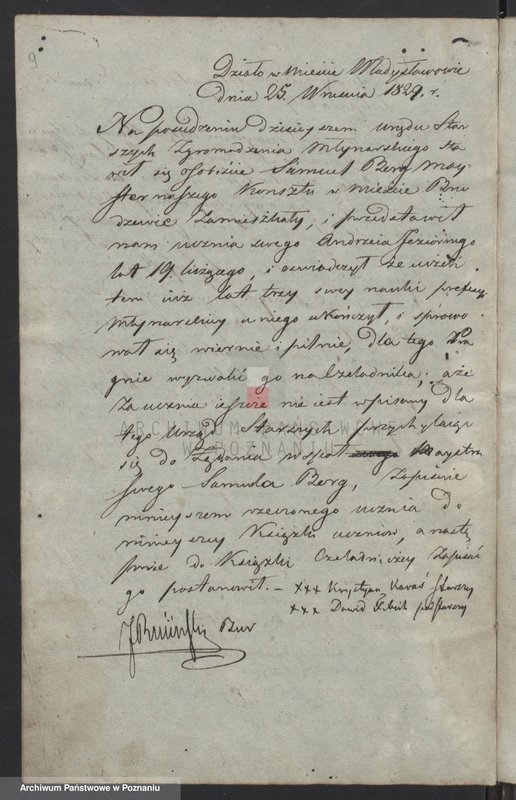 9
Działo w Mieście Władysławowie
dnia 25. Września 1829. r.
Na posiedzeniu dzisieyszem urzędu Star
szych Zgromadzenia Młynarskiego sta
wił się osobiście Samuel Berg May
ster naszego Konsztu w Mieście Bru
dzewie Zamieszkały, i przedstawił
nam ucznia swego Andrzeia
lat 19 liczącego, i oswiadczył że uczeń
ten iuż lat trzy swey nauki professyi
Młynarskiey u niego ukończył, i sprawo
wał się wiernie i pilnie, dla tego Pra
gnie wyzwolić go na Czeladnika; a że
Za ucznia ieszcze nie iest wpisany dla
tego Urząd Starszych przychylaiąc
się do Żądania wspol Maystra
swego Samuela Berg, Zapisanie
ninieyszem rzeczonego ucznia do
ninieyszey Książki uczniow, a nastę
pnie do Książki Czeladniczey Zapisać
go postanowił. — xxx Krystyan Starszy
xxx Dawid podstarszy
Bur
ARCHIWUM PAŃSTWOWE
W POZNANIU
Archiwum Państwowe w Poznaniu